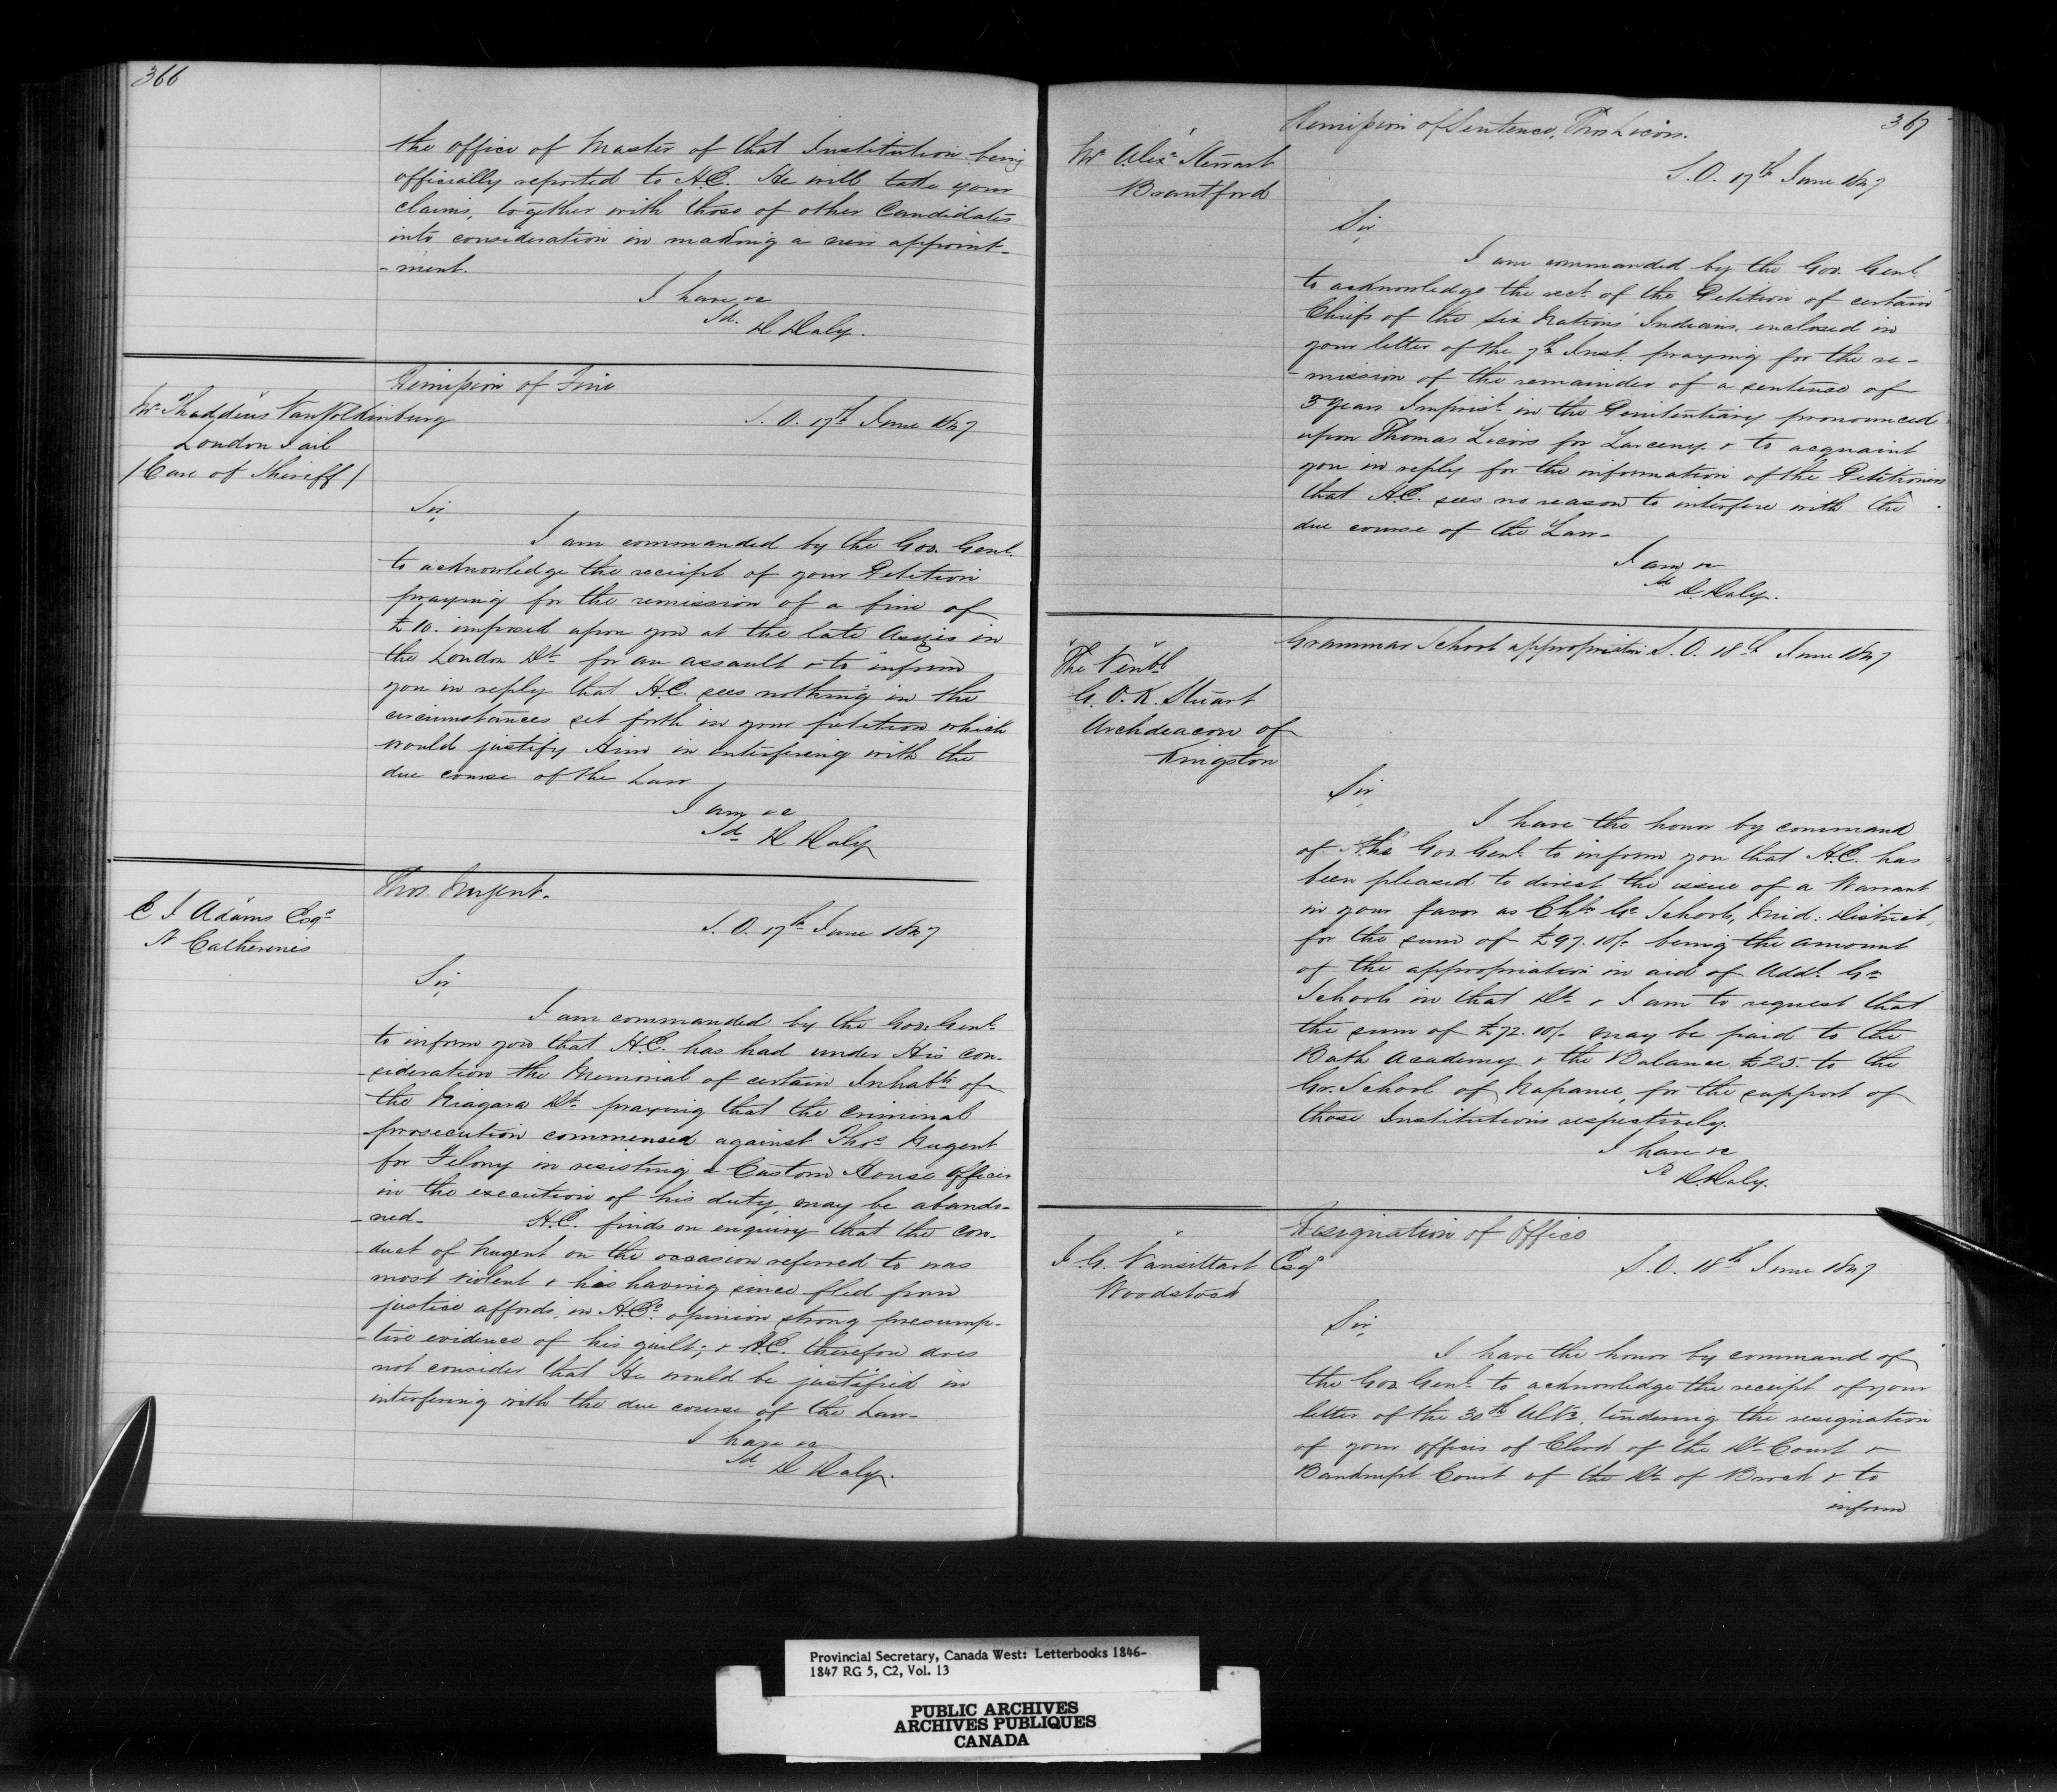 366
the office of Master of that Institution being
officially reported to H.E. He will take your
claims, together with those of other Candidates
into consideration in making a new appoint-
-ment.
I have &c
Sd. D Daly.
Remission of Fine
Mr Thaddeus VanVolkinburg
London Jail
/Care of Sheriff/
S.O. 17th June 1847
Sir,
I am commanded by the Gov. Genl.
to acknowledge the receipt of your Petition
praying for the remission of a fine of
£10. imposed upon you at the late Assizes in
the London Dt. for an assault & to inform
you in reply that H.E. sees nothing in the
circumstances set forth in your petition which
would justify Him in interfering with the
due course of the Law
I am &c
Sd D Daly
Thos. Nugent.
C I Adams Esqr
St Catherines
S.O. 17th June 1847
Sir,
I am commanded by the Gov. Genl.
to inform you that H.E. has had under His con-
-sideration the Memorial of certain Inhabts. of
the Niagara Dt. praying that the criminal
prosecution commenced against Thos Nugent
for Felony in resisting a Custom House Officer
in the execution of his duty, may be abando-
-ned- H.E. finds on enquiry that the con-
-duct of Nugent on the occasion referred to was
most violent & his having since fled from
justice affords, in H.E's. opinion strong presump-
-tive evidence of his guilt; & H.E. therefore does
not consider that He would be justified in
interfering with the due course of the Law-
I have &c
Sd. D Daly.
367
Remission of Sentence, Thos
Mr Alexr Stewart
Brantford
S.O. 17th June 1847
Sir,
I am commanded by the Gov. Genl.
to acknowledge the rect. of the Petition of certain
Chiefs of the Six Nations' Indians, enclosed in
your letter of the 7th Inst. praying for the re-
-mission of the remainder of a sentence of
3 years Imprist. in the Penitentiary pronounced
upon Thomas for Larceny. & to acquaint
you in reply for the information of the Petitioners
that H.E. sees no reason to interfere with the
due course of the Law-
I am &c
Sd D. Daly.
Grammar School appropriation S.O. 18th June 1847
The Venbl
G. O. K. Stuart
Archdeacon of
Kingston
Sir,
I have the honor by command
of the Gov. Genl. to inform you that H.E. has
been pleased to direct the issue of a Warrant
in your favor as Chn. Gr. Schools, Mid: District,
for the sum of £97.10/- being the amount
of the appropriation in aid of Addl. Gr
Schools in that Dt. & I am to request that
the sum of £72.10/- may be paid to the
Bath Academy & the Balance £25- to the
Gr. School of Napanee, for the support of
those Institutions respectively.
I have &c
Sd D. Daly.
Resignation of Office
J. G. Vansittart Esqr
Woodstock
S.O. 18th June 1847
Sir,
I have the honor by command of
the Gov Genl. to acknowledge the receipt of your
letter of the 30th Ulto. tendering the resignation
of your offices of Clerk of the Dt. Court &
Bankrupt Court of the Dt. of Brock & to
inform
Provincial Secretary, Canada West: Letterbooks 1846-
1847 RG 5, C2, Vol. 13
PUBLIC ARCHIVES
ARCHIVES PUBLIQUES
CANADA